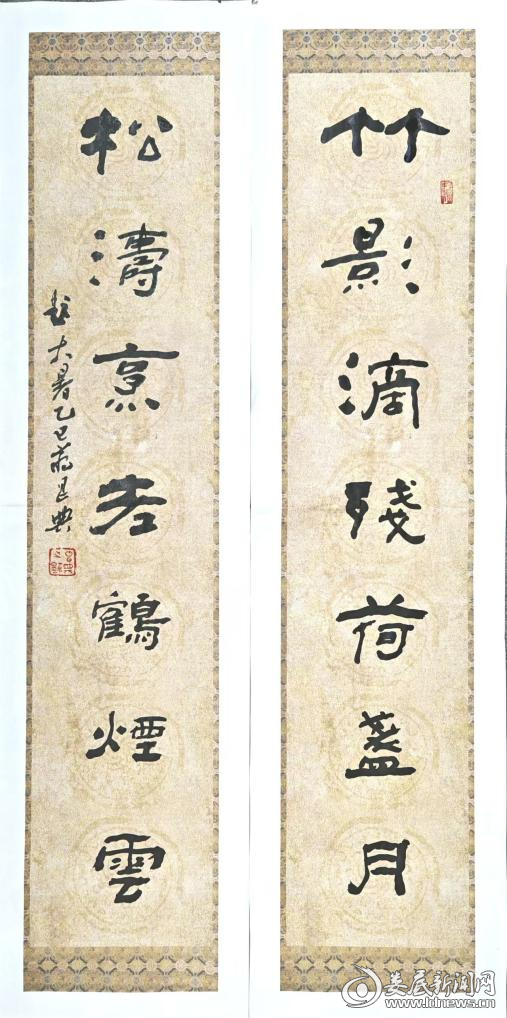 竹影滴殘荷盞月
松濤烹老鶴煙雲
大暑乙巳蒋昌典
娄底新闻网
www.ldnews.cn